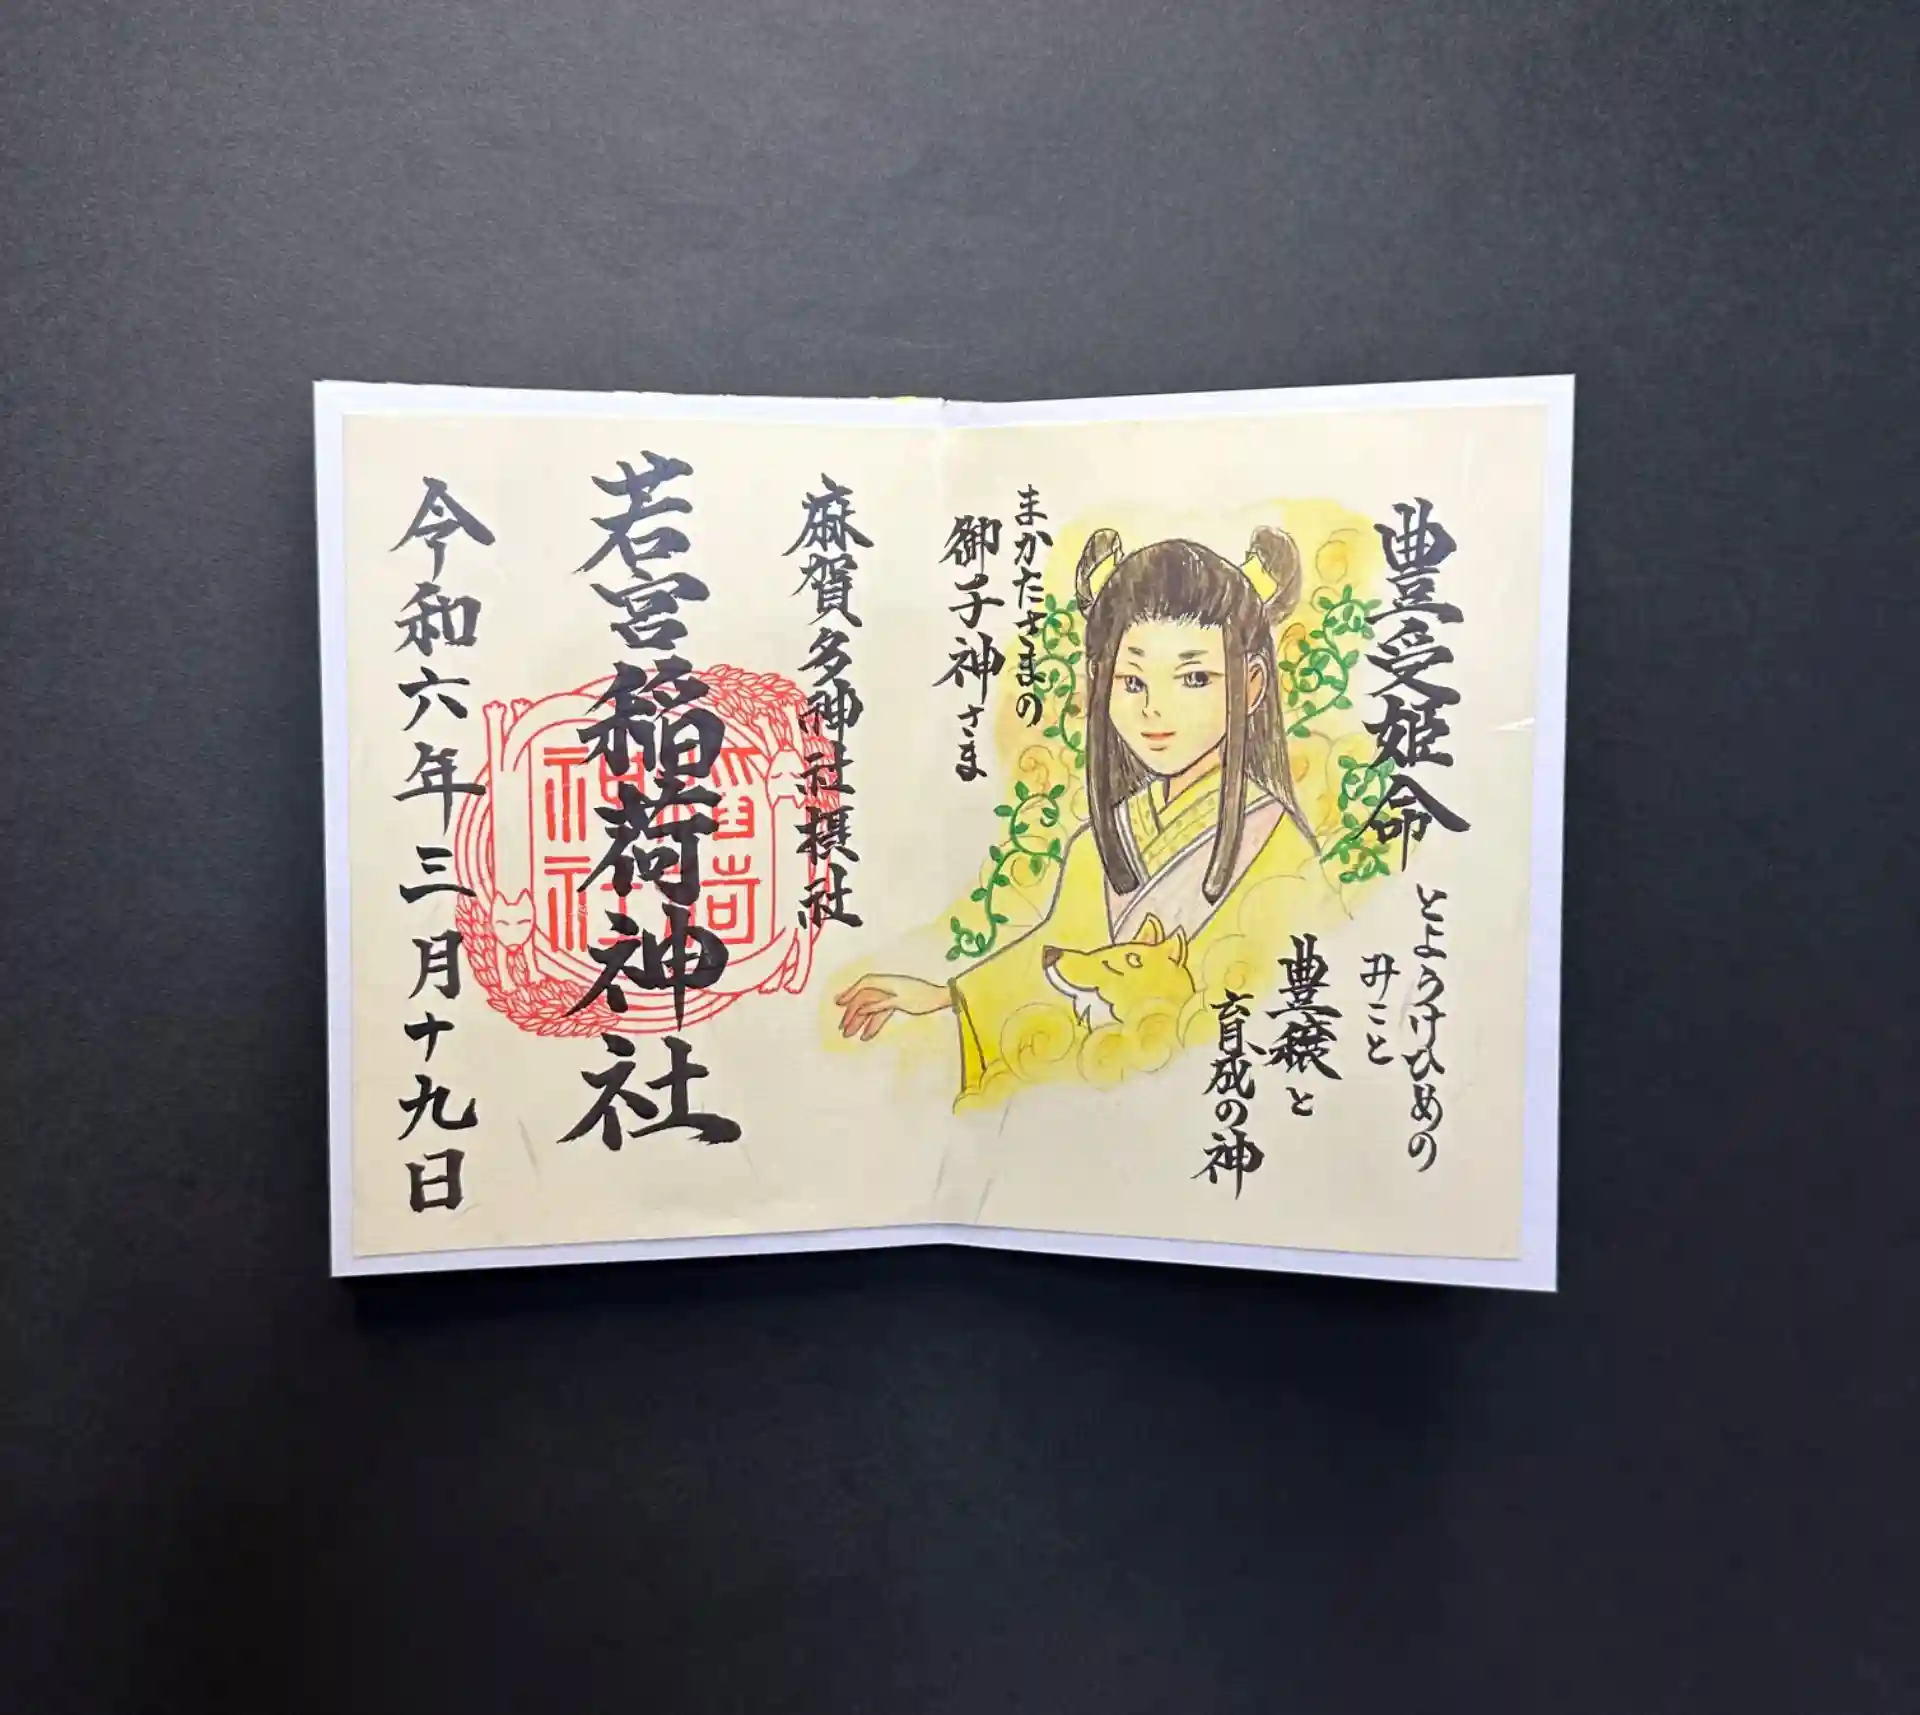 豊受姫命
とようけひめの
みこと
豊穣と
育成の神
まかたさまの
御子神さま
麻賀多神社摂社
若宮稲荷神社
令和六年三月十九日